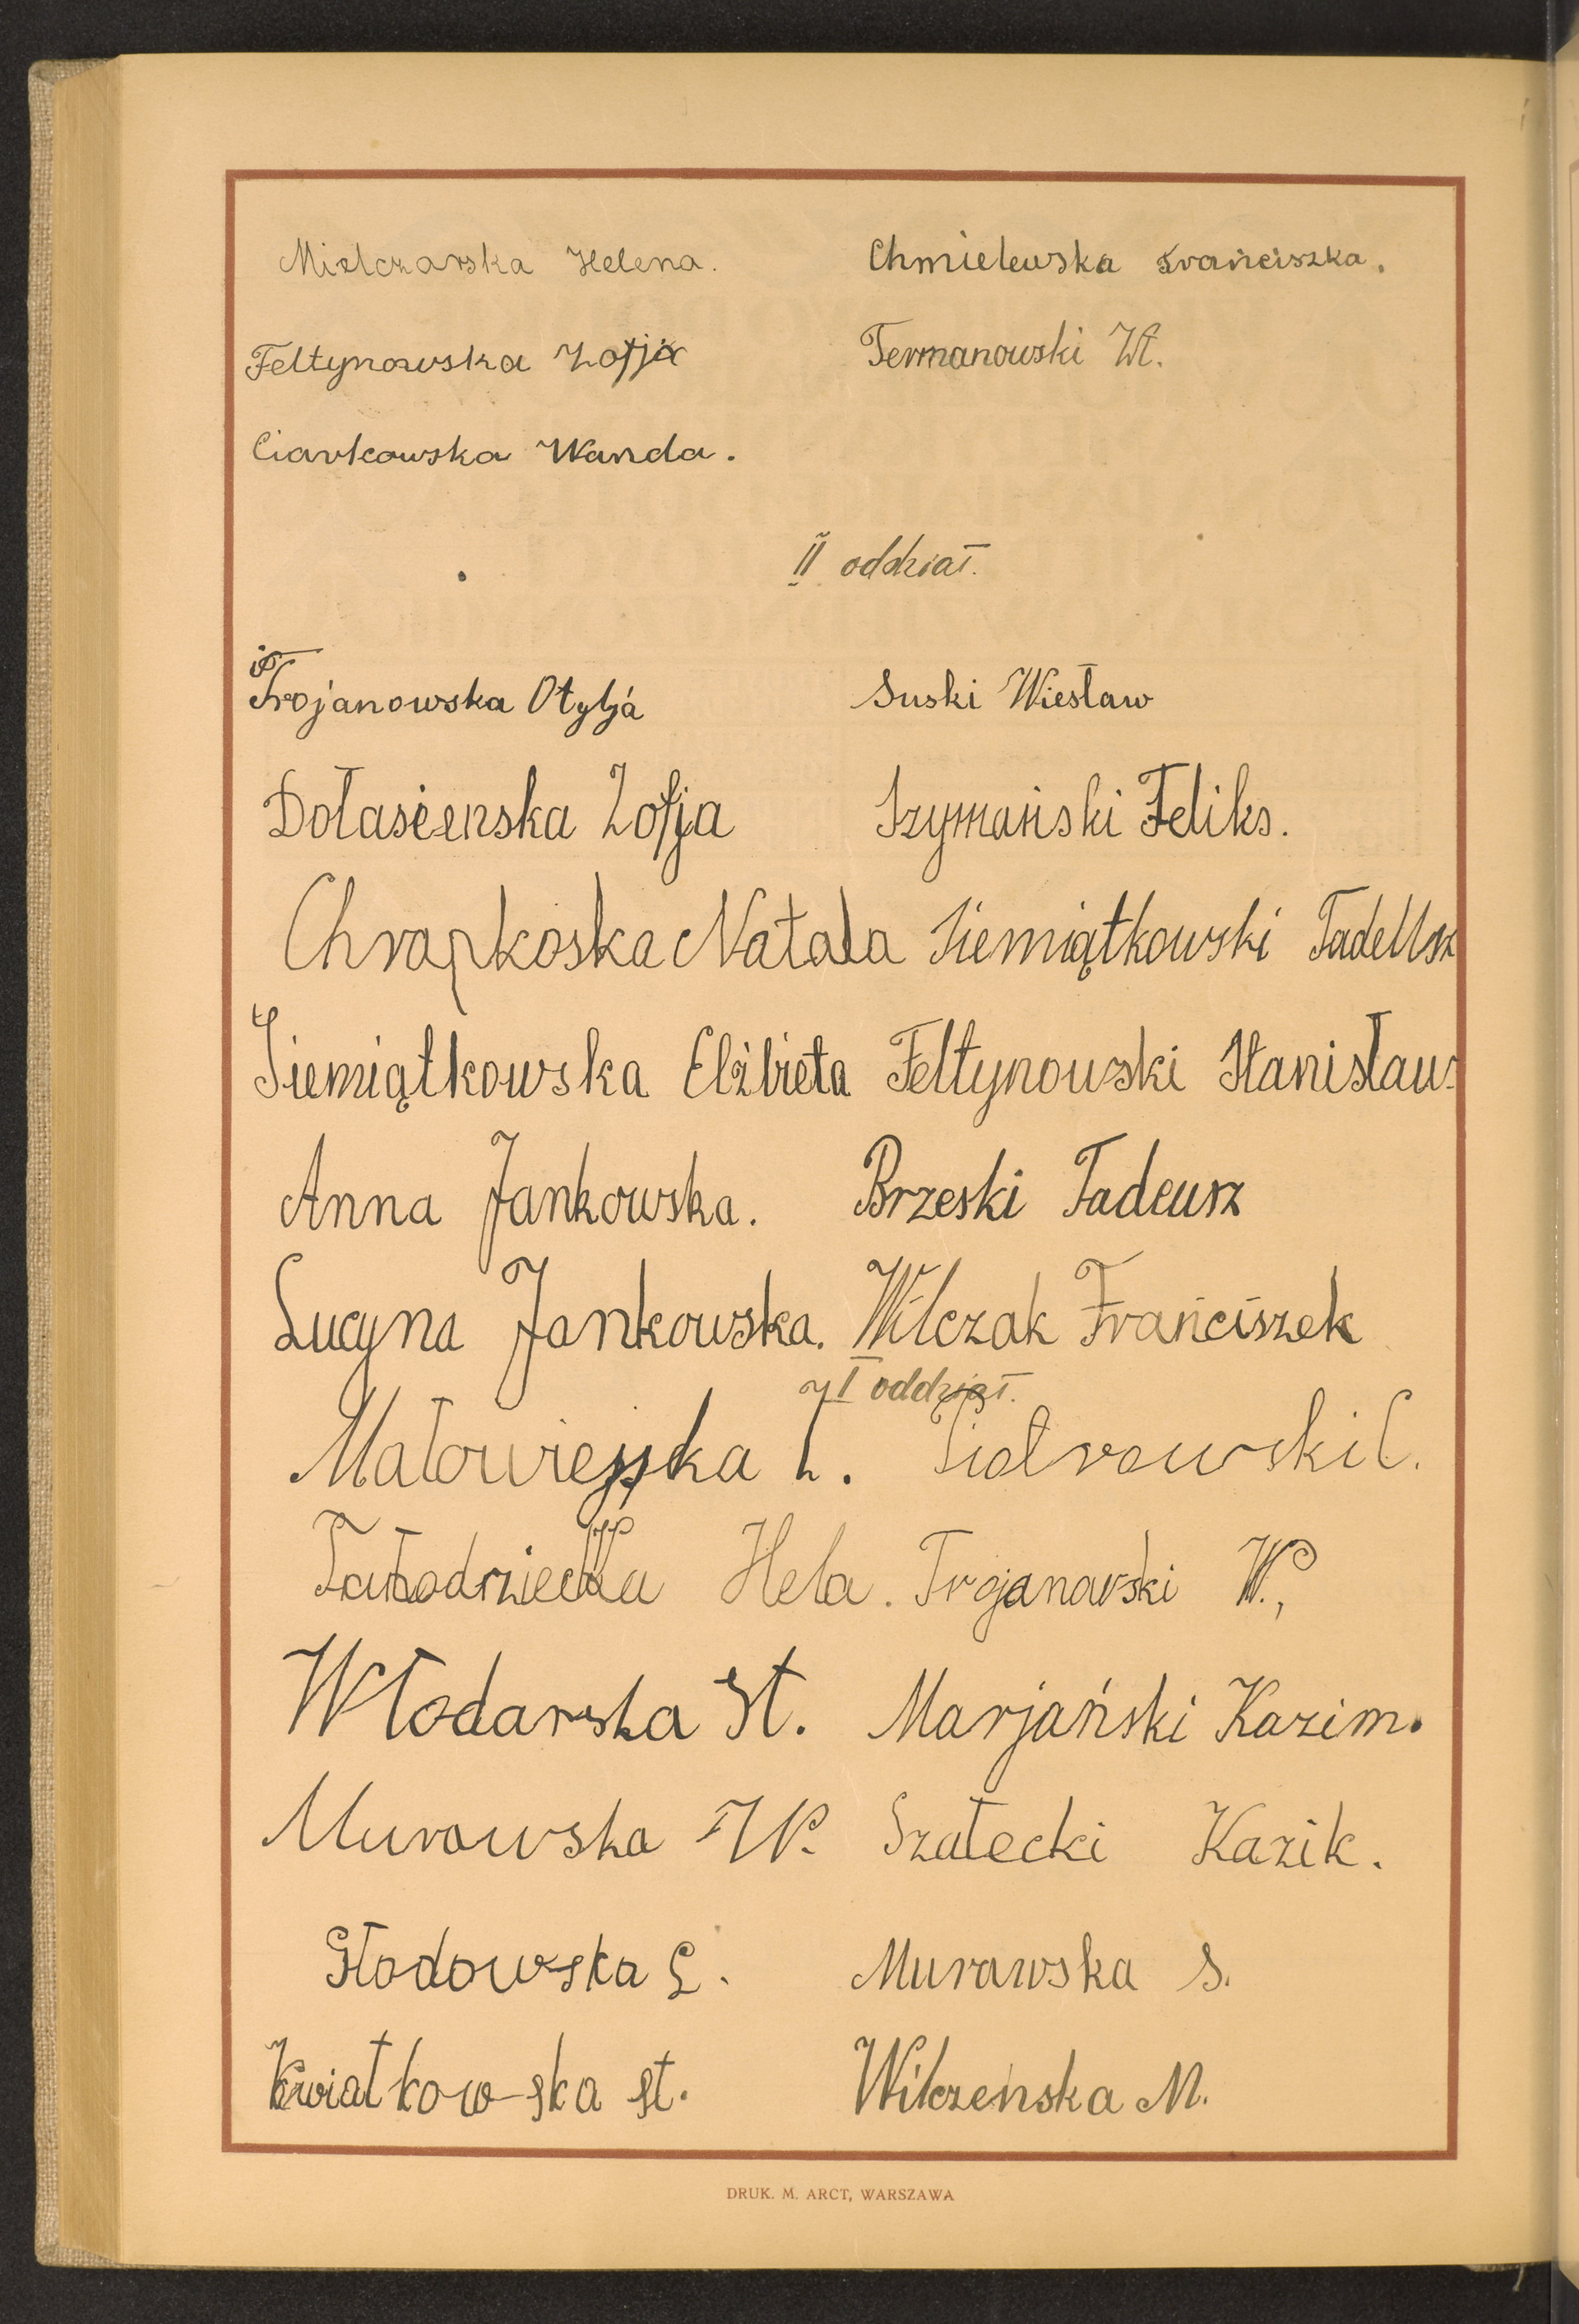 Mielczarska Helena. Chmielewska Franciszka.
Feltynowska Zofja Termanowski Wł.
Ciarkowska Wanda.
II oddział.
Trojanowska Otylja Suski Wiesław
Dołasieńska Zofja Szymański Feliks.
Chrapkoska Natala Siemiątkowski Tadeusz
Siemiątkowska Elżbieta Feltynowski Stanisław
Anna Jankowska. Brzeski Tadeusz
Lucyna Jankowska. Wilczak Franciszek
I oddział.
Małowiejska Z. Piotrowski C.
Hela. Trojanowski W.,
Włodarska St. Marjański Kazim.
Murowska W. Szałecki Kazik.
Głodowska G. Murawska S.
Kwiatkowska St. Wilczenska M.
DRUK. M. ARCT, WARSZAWA